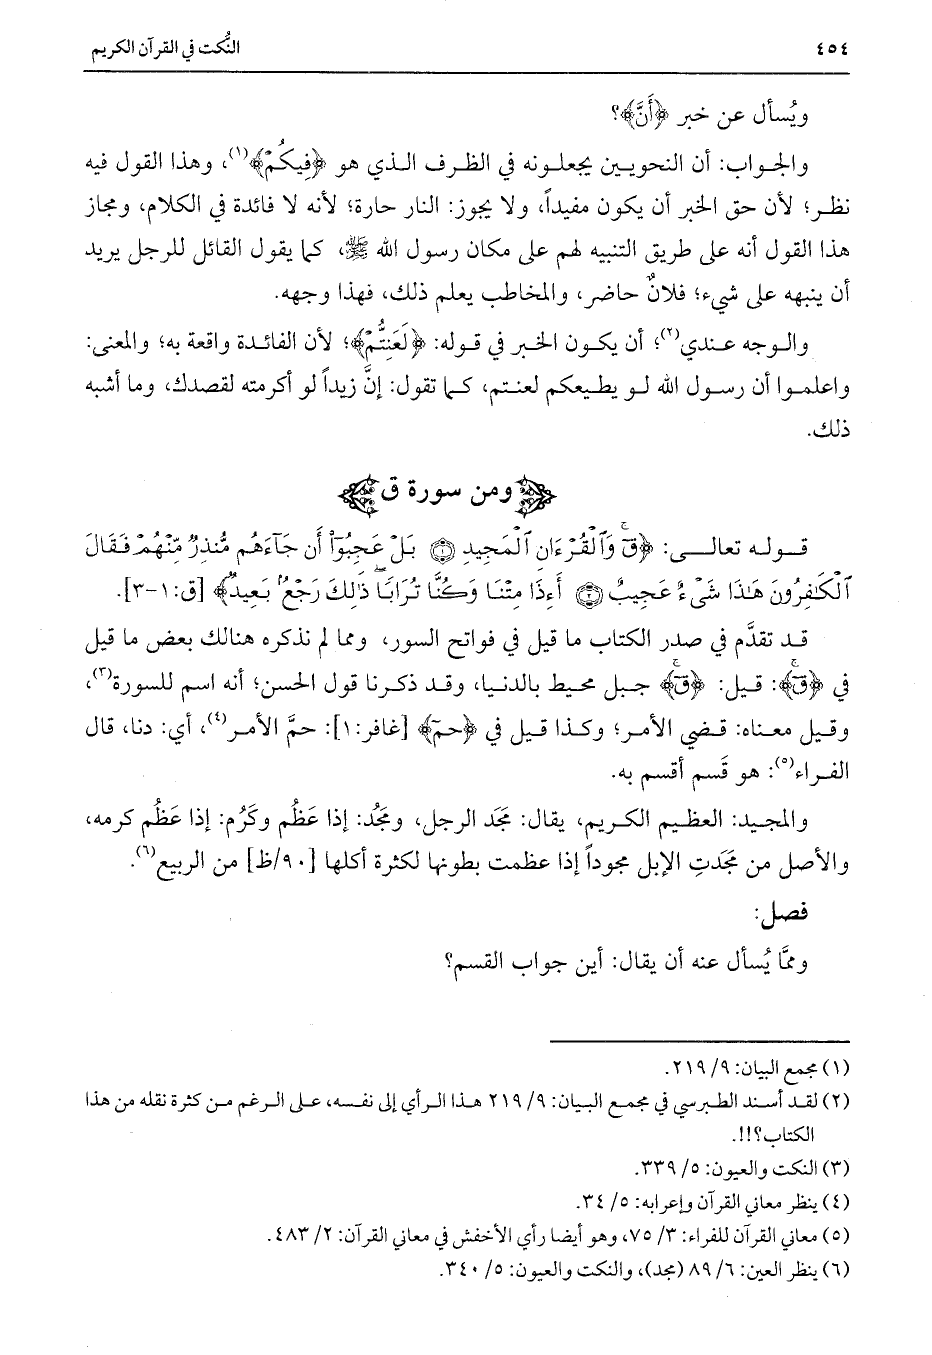 ٤٥٤ النُّكت في القرآن الكريم
ويُسأل عن خبر ﴿أَنَّ﴾؟
والجواب: أن النحويين يجعلونه في الظرف الذي هو ﴿فِيكُمْ﴾(١)، وهذا القول فيه
نظر؛ لأن حق الخبر أن يكون مفيداً، ولا يجوز: النار حارة؛ لأنه لا فائدة في الكلام، ومجاز
هذا القول أنه على طريق التنبيه لهم على مكان رسول الله ﷺ، كما يقول القائل للرجل يريد
أن ينبهه على شيء؛ فلانٌ حاضر، والمخاطب يعلم ذلك، فهذا وجهه.
والوجه عندي(٢)؛ أن يكون الخبر في قوله: ﴿لَعَنِتُّمْ﴾؛ لأن الفائدة واقعة به؛ والمعنى:
واعلموا أن رسول الله لو يطيعكم لعنتم، كما تقول: إنَّ زيداً لو أكرمته لقصدك، وما أشبه
ذلك.
ومن سورة ق
قوله تعالى: ﴿قٓ وَٱلْقُرْءَانِ ٱلْمَجِيدِ ۝١ بَلْ عَجِبُوٓا۟ أَن جَآءَهُم مُّنذِرٌ مِّنْهُمْ فَقَالَ
ٱلْكَٰفِرُونَ هَٰذَا شَىْءٌ عَجِيبٌ ۝٢ أَءِذَا مِتْنَا وَكُنَّا تُرَابًا ذَٰلِكَ رَجْعٌۢ بَعِيدٌ﴾ [ق:١-٣].
قد تقدَّم في صدر الكتاب ما قيل في فواتح السور، ومما لم نذكره هنالك بعض ما قيل
في ﴿قٓ﴾: قيل: ﴿قٓ﴾ جبل محيط بالدنيا، وقد ذكرنا قول الحسن؛ أنه اسم للسورة(٣)،
وقيل معناه: قضي الأمر؛ وكذا قيل في ﴿حمٓ﴾ [غافر:١]: حمَّ الأمر(٤)، أي: دنا، قال
الفراء(٥): هو قَسم أقسم به.
والمجيد: العظيم الكريم، يقال: مَجَد الرجل، ومجُد: إذا عَظُم وكَرُم: إذا عَظُم كرمه،
والأصل من مَجَدتِ الإبل مجوداً إذا عظمت بطونها لكثرة أكلها [٩٠/ظ] من الربيع(٦).
فصل:
وممَّا يُسأل عنه أن يقال: أين جواب القسم؟
(١) مجمع البيان: ٩/ ٢١٩.
(٢) لقد أسند الطبرسي في مجمع البيان: ٩/ ٢١٩ هذا الرأي إلى نفسه، على الرغم من كثرة نقله من هذا
الكتاب؟!!.
(٣) النكت والعيون: ٥/ ٣٣٩.
(٤) ينظر معاني القرآن وإعرابه: ٥/ ٣٤.
(٥) معاني القرآن للفراء: ٣/ ٧٥، وهو أيضا رأي الأخفش في معاني القرآن: ٢/ ٤٨٣.
(٦) ينظر العين: ٦/ ٨٩ (مجد)، والنكت والعيون: ٥/ ٣٤٠.